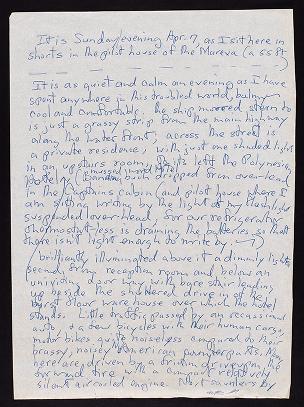 It is Sunday evening Apr. 7, as I sit here in
shorts in the pilot house of the Mareva (a 55 ft
It is as quiet and calm an evening as I have
spent anywhere in this troubled world, balmy
cool and comfortable. The ship moored stern to
is just a grassy strip from the main highway
along the water front; across the street is
a private residence, with just one shaded light
in an upstairs room. To its left the Polynesian
dripped from overhead
in the Captains cabin (and pilot house where I
am sitting writing by the light of my flashlight
suspended overhead, for our refrigerator
thermostatless is draining the batteries so that
there isn't light enough to write by.
brilliantly illuminated above it a dimly lighted
second, story reception room and below an
uninviting door way with bare stair leading
up beside the shuttered drive in of the
burnt out ware house over which the hotel
stands. Little traffic passed by, an occasional
auto & a few bicycles with their human cargo,
motor bikes quite noiseless compared to their
brassy, noisey American counterparts. Many
here are driven by a driving
forward tire with a compact relatively
silent air cooled engine. Next saunters by